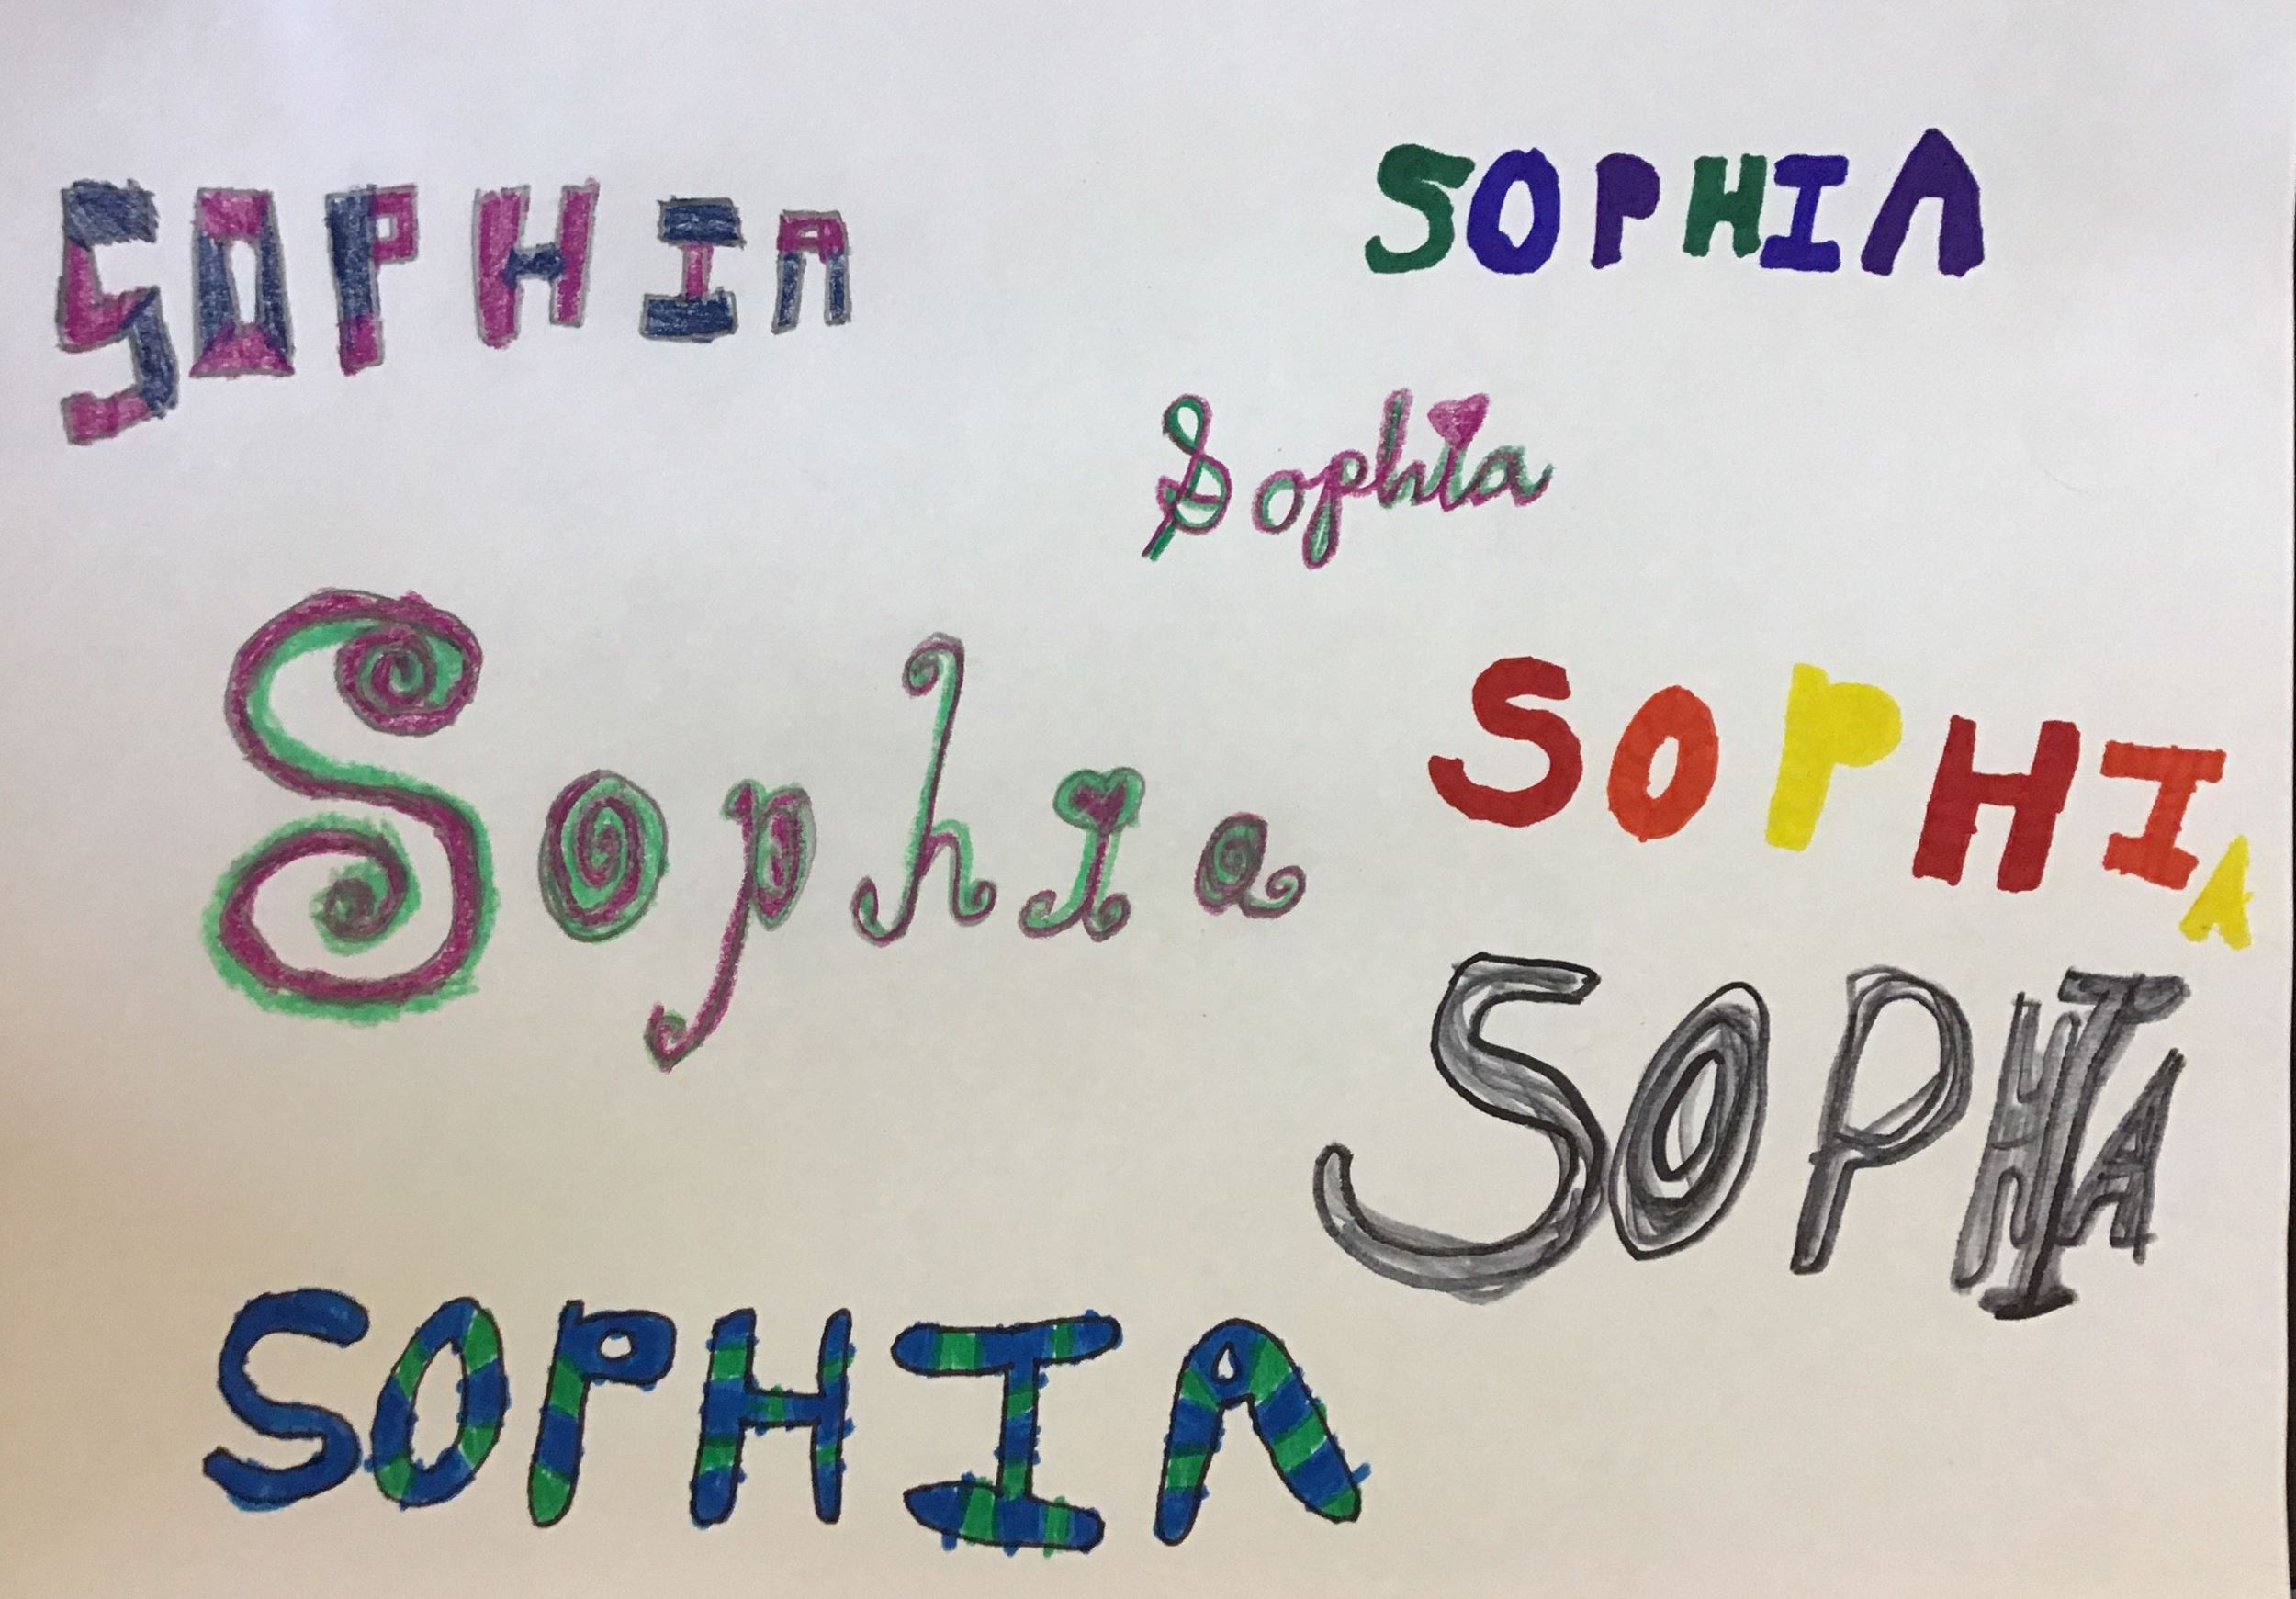 SOPHIA
SOPHIA
Sophia
Sophia
SOPHIA
SOPHIA
SOPHIA